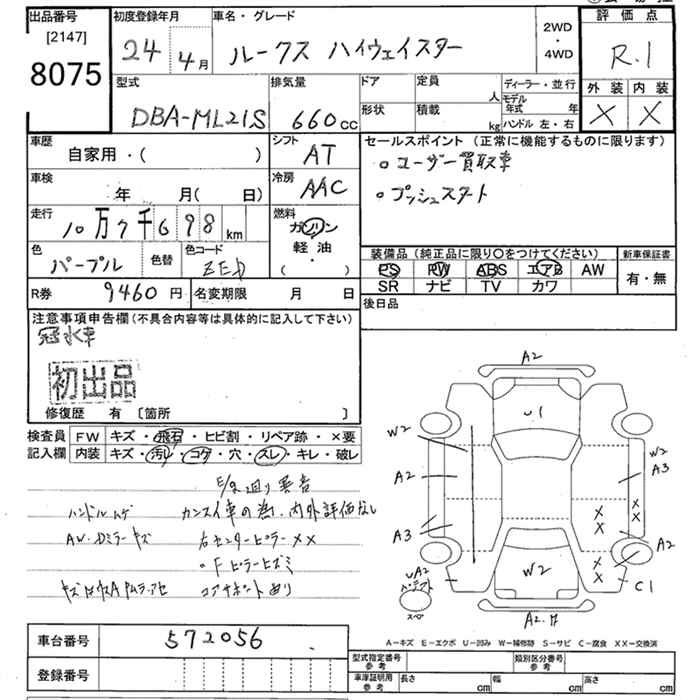 出品番号 初度登録年月 車名・グレード 2WD・4WD 評価点
[2147] 8075 24年 4月 ルークス ハイウェイスター R.1
型式 排気量 ドア 定員 人 ディーラー・並行 外装 内装
DBA-ML21S 660cc 形状 積載 kg モデル年式 年 ハンドル 左・右 × ×
車歴 自家用・( ) シフト AT セールスポイント(正常に機能するものに限ります)
車検 年 月(日) 冷房 AAC 。ユーザー買取車
走行 10万7千698km 燃料 ガソリン 軽油・( ) ・プッシュスタート
色 パープル 色替 色コード
装備品(純正品に限り○をつけてください) 新車保証書
PS PW ABS エアB AW 有・無
SR ナビ TV カワ
R券 9460円 名変期限 月 日 後日品
注意事項申告欄(不具合内容等は具体的に記入して下さい)
冠水車
初出品
修復歴 有〔箇所 〕
検査員 FW キズ・飛石・ヒビ割・リペア跡・×要
記入欄 内装 キズ・汚レ・コゲ・穴・スレ・キレ・破レ
E/g廻り異音
ハンドルハゲ カンスイ車の為、内外評価なし
AW・Dミラーキズ 右センターピラー××
。Fピラーヒズミ
コアサポートあり
A2
U1
W2 W2
A2 A3
× ×
× ×
A3 A2
UA2 W2 ×
× C1
スペア
A2.
車台番号 572056
A-キズ E-エクボ U-凹み W-補修跡 S-サビ C-腐食 XX-交換済
登録番号 型式指定番号 参考 類別区分番号 参考
車庫証明用 参考 長さ cm 幅 cm 高さ cm